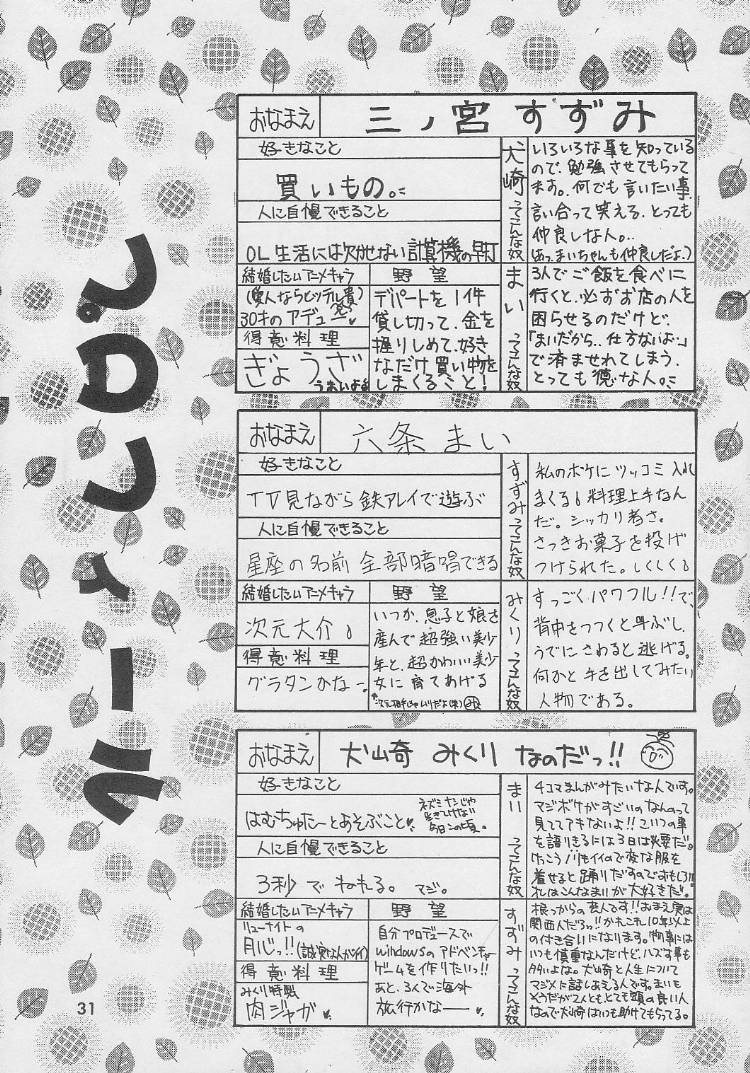 プロフィール
おなまえ
三ノ宮 すずみ
好きなこと
買いもの。
人に自慢できること
OL生活には欠かせない計算機の早打
結婚したいアニメキャラ
30才のアデュー
得意料理
ぎょうざ
うまいよ
野望
デパートを1件
貸し切って、金を
握りしめて、好き
なだけ買い物を
しまくること!
犬崎ってこんな奴
いろいろな事を知っている
ので、勉強させてもらって
ます。何でも言いたい事
言い合って笑える、とっても
仲良しな人。
(あっ、まいちゃんも仲良しだよ。)
まいってこんな奴
3人でご飯を食べに
行くと、必ずお店の人を
困らせるのだけど、
「まいだから、仕方ないよ。」
で済ませれてしまう、
とっても徳な人。
おなまえ
六条まい
好きなこと
TV見ながら鉄アレイで遊ぶ
人に自慢できること
星座の名前 全部暗唱できる
結婚したいアニメキャラ
次元大介
得意料理
グラタンかなー
野望
いつか、息子と娘を
産んで超強い美少
年と、超かわいい美少
女に育てあげる
すずみってこんな奴
私のボケにツッコミ入れ
まくる 料理上手なん
だ。シッカリ者さ。
さっきお菓子を投げ
つけられた。しくしく
みくりってこんな奴
すっごくパワフル!!で、
背中をつつくと呼ぶし、
うでにさわると逃げる。
何かと手を出してみたい
人物である。
おなまえ
犬崎 みくり なのだっ!!
好きなこと
はむちゅたーとあそぶこと
人に自慢できること
3秒でねれる。マジ。
結婚したいアニメキャラ
リューナイトの
月心っ!!
得意料理
みくり特製
肉ジャガ
野望
自分プロデュースで
windowsのアドベンチャー
ゲームを作りたいっ!!
あと、3人で海外
旅行かなー
まいってこんな奴
4コマまんがみたいな人です。
マジボケがすごいのなんのって
見ててアキないよ!!こいつの事
を語りきるには3日は必要だ。
けっこうノリもイイので変な服を
着せると踊りだすのですおもしろい
おれはこんなまいが大好きだ。
すずみってこんな奴
根っからの芸人です!!おまえ実は
関西人だろっ!!かれこれ10年以上
の付き合いになります。物事には
いつも慎重なんだけど、ハズす事も
多いよな。犬崎と人生について
マジメに話しあえる人です。まいも
そうだが2人ともとても頭の良い人
なので犬崎はいつも助けてもらってる。
31